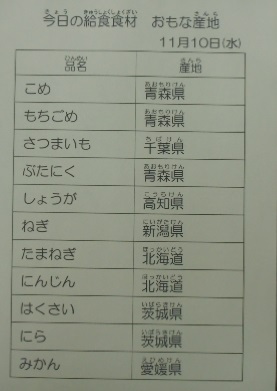 今日の給食食材　おもな産地
11月10日(水)
品名　産地
こめ　青森県
もちごめ　青森県
さつまいも　千葉県
ぶたにく　青森県
しょうが　高知県
ねぎ　新潟県
たまねぎ　北海道
にんじん　北海道
はくさい　茨城県
にら　茨城県
みかん　愛媛県